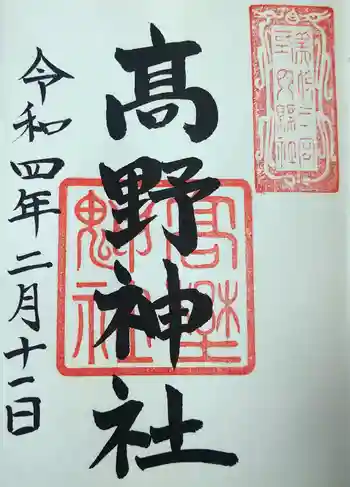 美作二宮
髙野神社
髙野神社
令和四年二月十一日